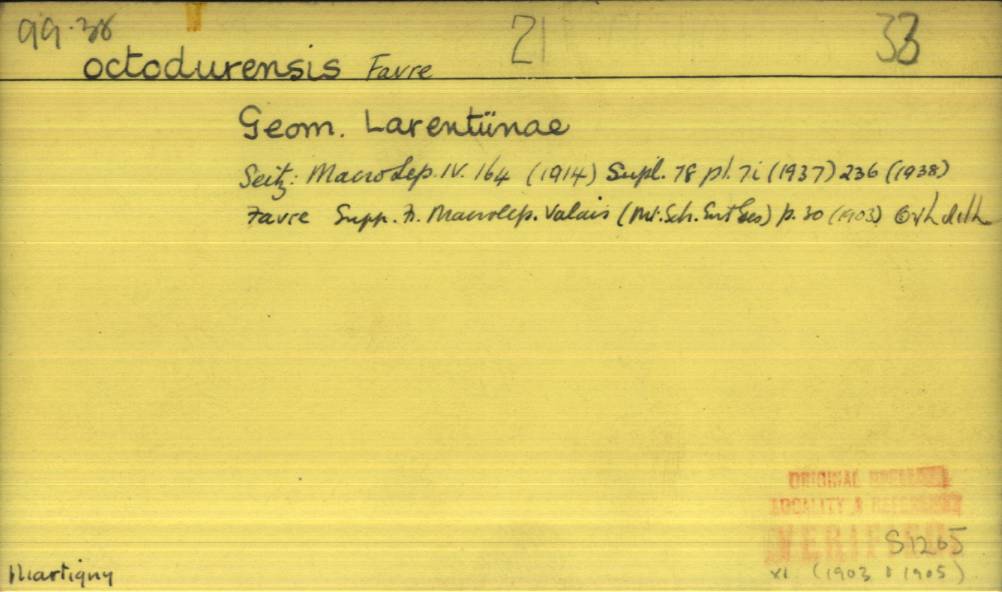 99.38 21 33
octodurensis Favre
Geom. Larentiinae
Seitz: MacroLep. IV. 164 (1914) Supl. 78 pl. 7i (1937) 236 (1938)
Favre Supp. Macrolep. Valais (Mit. Sch. Ent Ges) p. 30 (1903)
ORIGINAL SPELLING
LOCALITY & REFERENCE
VERIFIED
S1265
Martigny
XI (1903 & 1905)